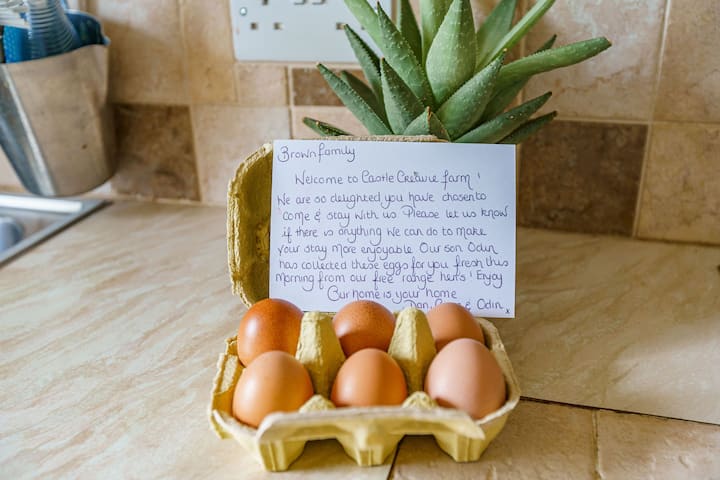 Brown family
Welcome to Castle Creavie farm!
We are so delighted you have chosen to
come & stay with us. Please let us know
if there is anything we can do to make
your stay more enjoyable. Our son Odin
has collected these eggs for you fresh this
morning from our free range hens! Enjoy
Our home is your home
Dan, & Odin x